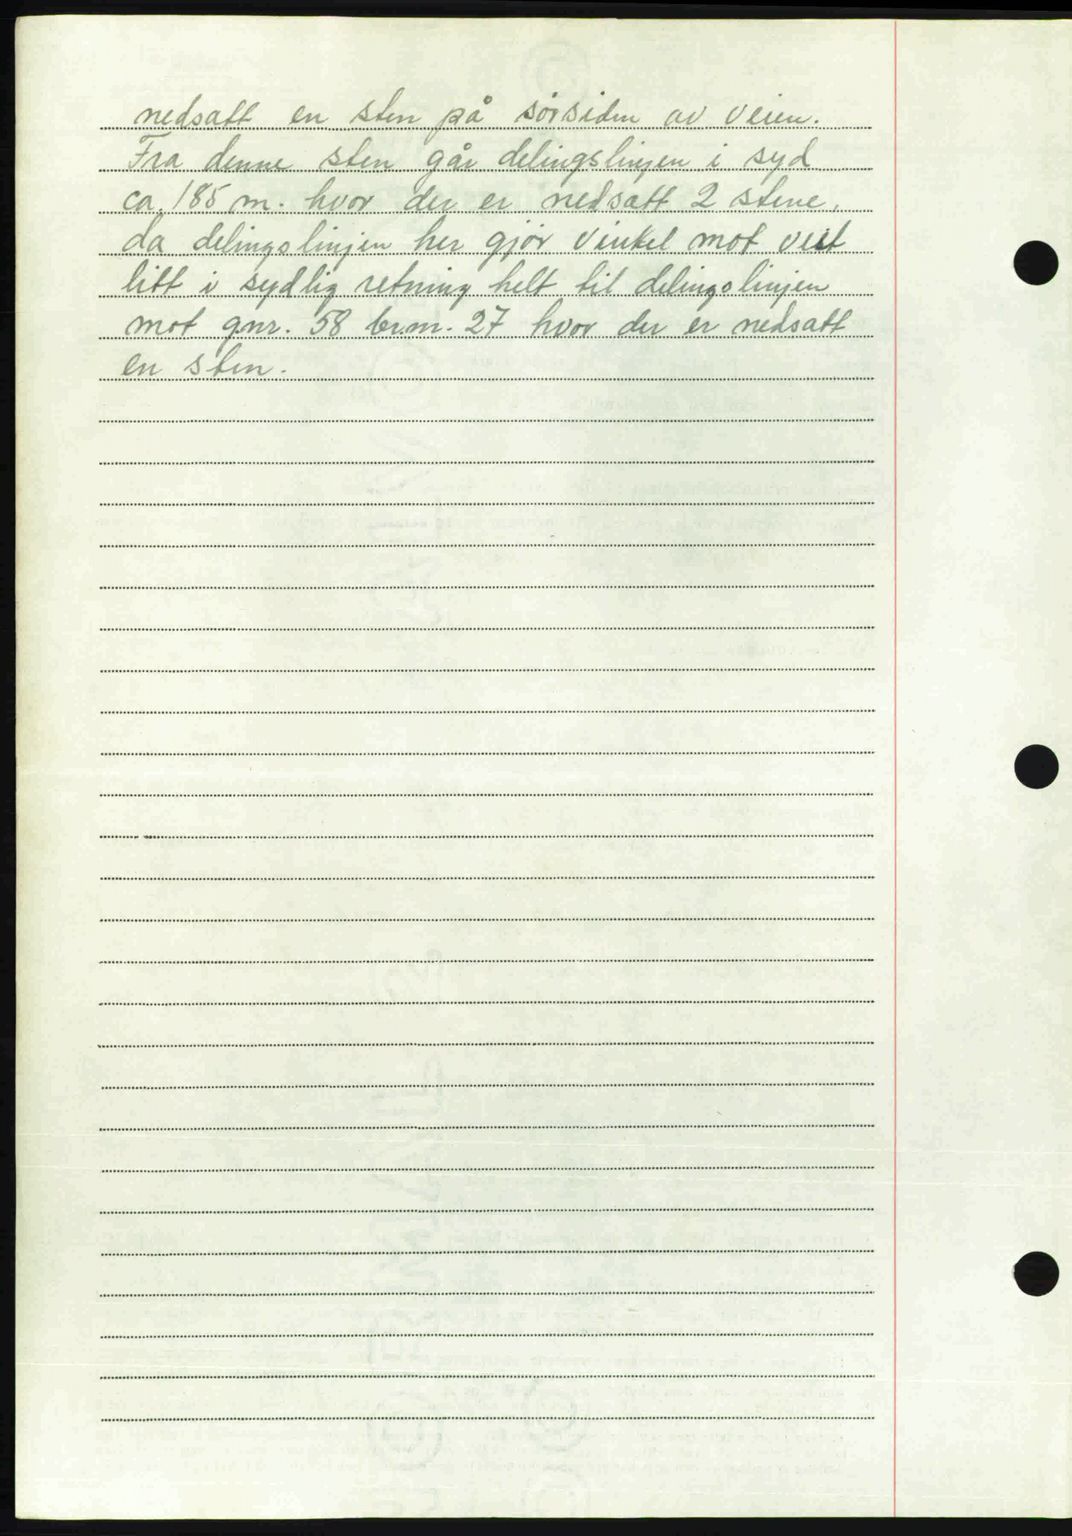 nedsatt en sten på sörsiden av veien.
Fra denne sten går delingslinjen i syd
ca. 185 m. hvor der er nedsatt 2 stene,
da delingslinjen her gjör vinkel mot vest
litt i sydlig retning helt til delingslinjen
mot gnr. 58 br.nr. 27 hvor der er nedsatt
en sten.